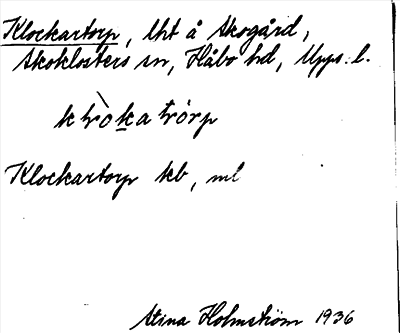 Klockartorp, lht å Skogård,
Skoklosters sn, Håbo hd, Upps. l.
klòkatórp
Klockartorp kb, ml
Stina Holmström 1936